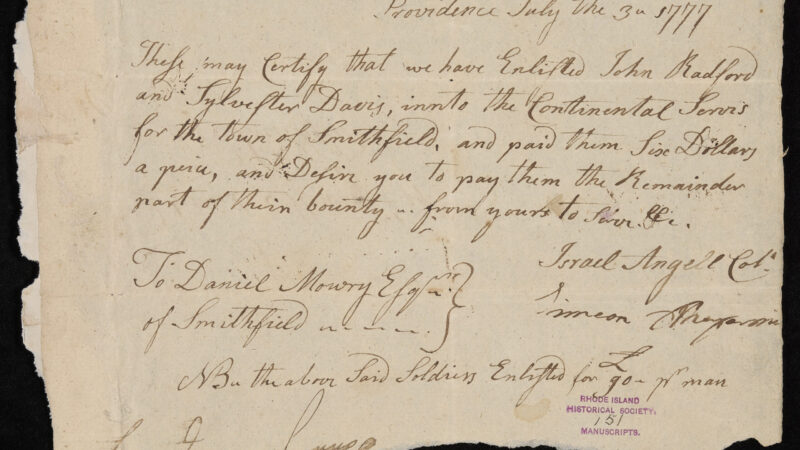 Providence July the 3d 1777
These may Certify that we have Enlisted John Radford
and Sylvester Davis, innto the Continental Servis
for the town of Smithfield, and paid them Six Dollars
a peic, and Desire you to pay them the Remainder
part of their bounty .. from yours to Serve &c.
Israel Angell Colo.
Simeon
To Daniel Mowry Esqr.
of Smithfield
NB the above Said Soldiers Enlisted for £ 90 - pr man
RHODE ISLAND
HISTORICAL SOCIETY.
151
MANUSCRIPTS.